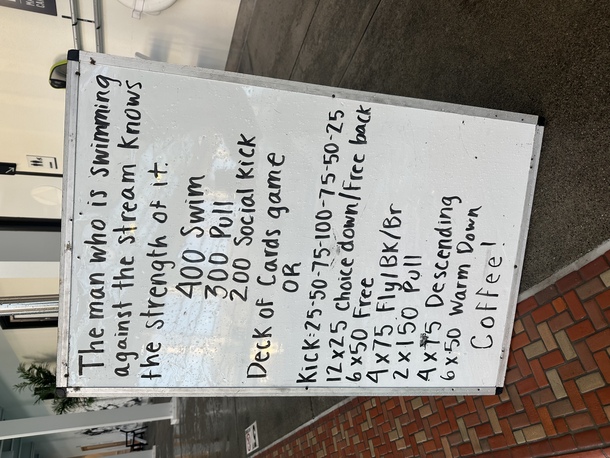 The man who is swimming
against the stream knows
the strength of it.
400 Swim
300 Pull
200 Social kick
Deck of Cards game
OR
Kick-25-50-75-100-75-50-25
12x25 Choice down/Free back
6x50 Free
4x75 Fly/BK/Br
2x150 Pull
4x75 Descending
6x50 Warm Down
Coffee!